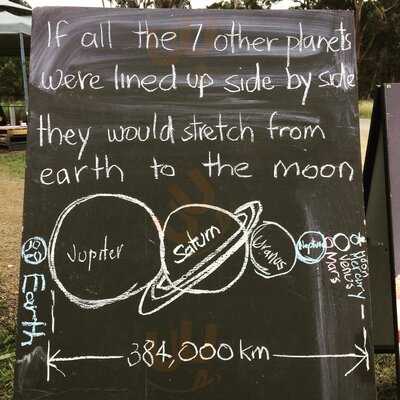 If all the 7 other planets
were lined up side by side
they would stretch from
earth to the moon
Jupiter
Saturn
Uranus
Neptune
Mars
Venus
Mercury
Moon
Earth
384,000km